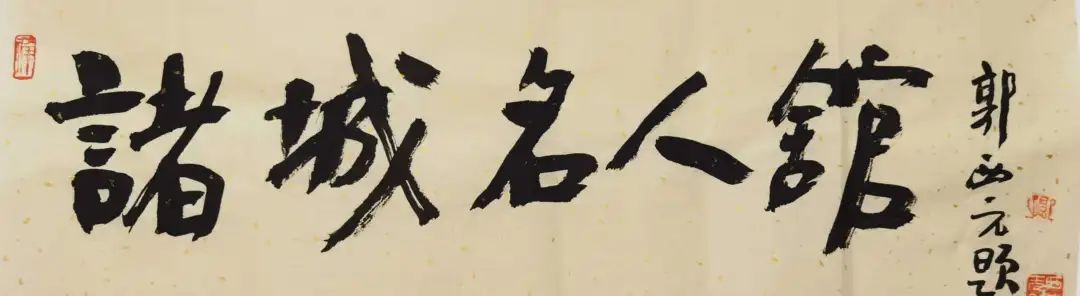 諸城名人舘
郭西元題